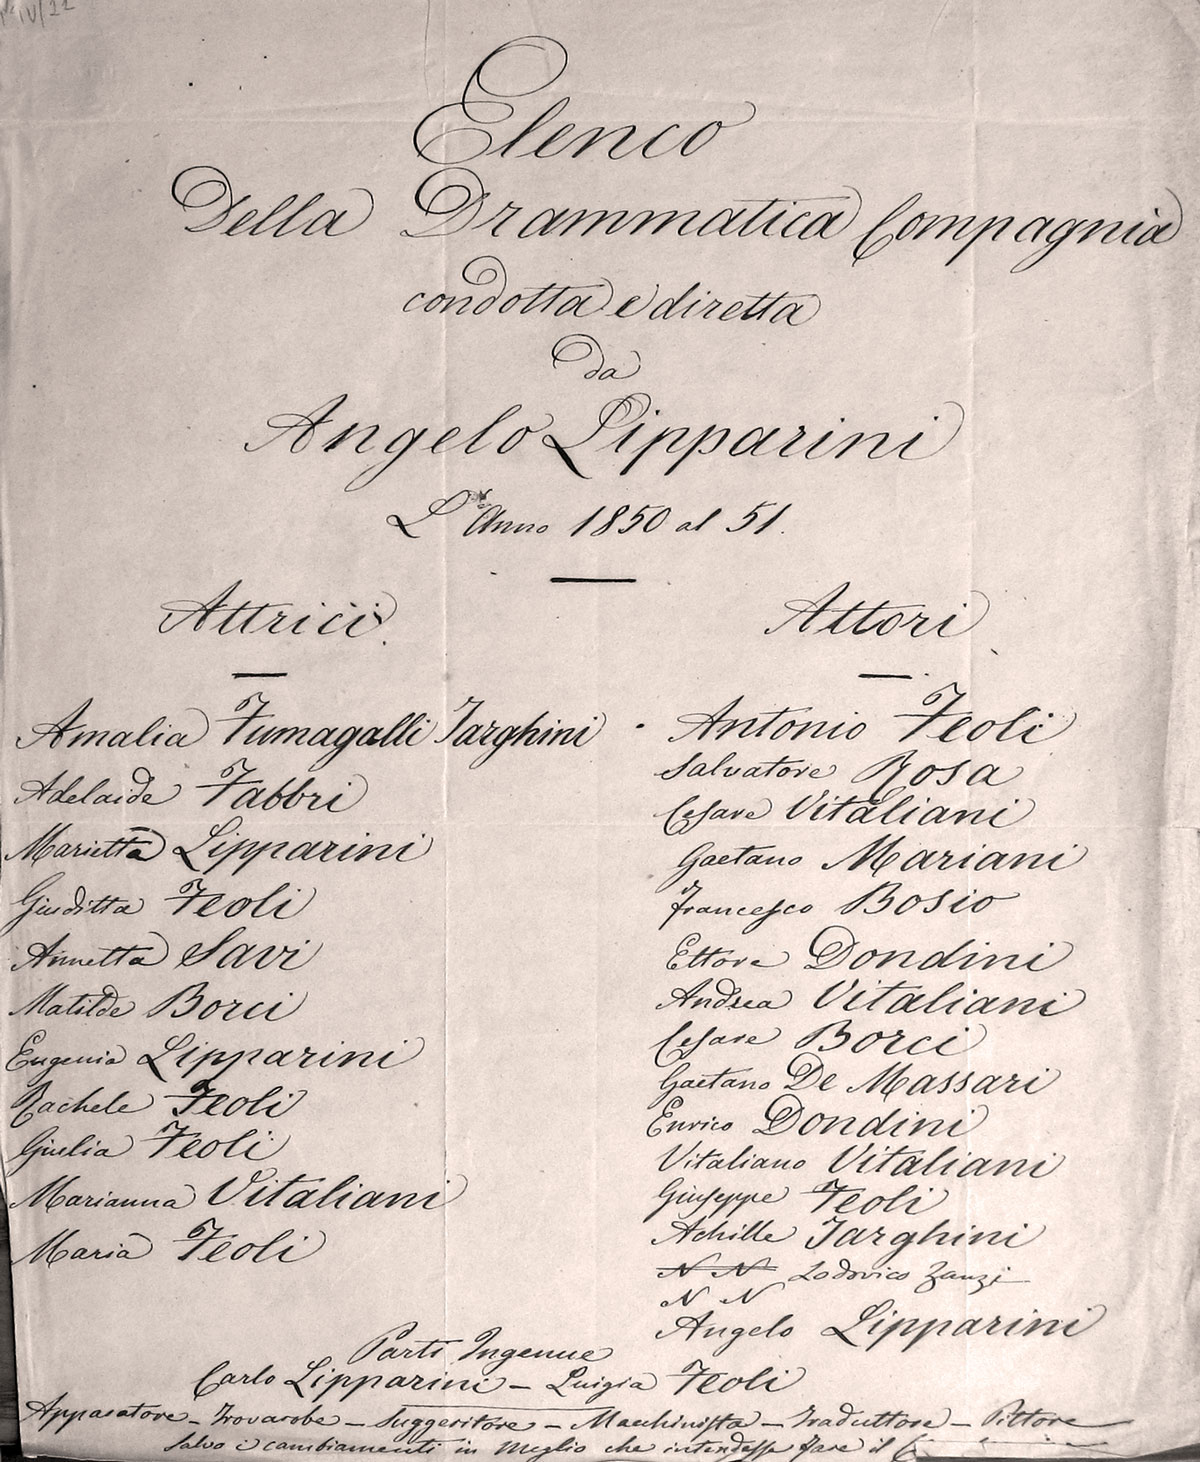 IV/22
Elenco
Della Drammatica Compagnia
condotta e diretta
da
Angelo Lipparini
L'Anno 1850 al 51.
Attrici
Amalia Fumagalli Targhini
Adelaide Fabbri
Marietta Lipparini
Giuditta Feoli
Annetta Savi
Matilde Borci
Eugenia Lipparini
Rachele Feoli
Giulia Feoli
Marianna Vitaliani
Maria Feoli
Attori
Antonio Feoli
Salvatore Rosa
Cesare Vitaliani
Gaetano Mariani
Francesco Bosio
Ettore Dondini
Andrea Vitaliani
Cesare Borci
Gaetano De Massari
Enrico Dondini
Vitaliano Vitaliani
Giuseppe Feoli
Achille Targhini
N N Lodovico Zanzi
N N
Angelo Lipparini
Parti Ingenue
Carlo Lipparini - Luigia Feoli
Apparatore - Trovarobe - Suggeritore - Macchinista - Traduttore - Pittore
Salvo i cambiamenti in meglio che intendesse fare il